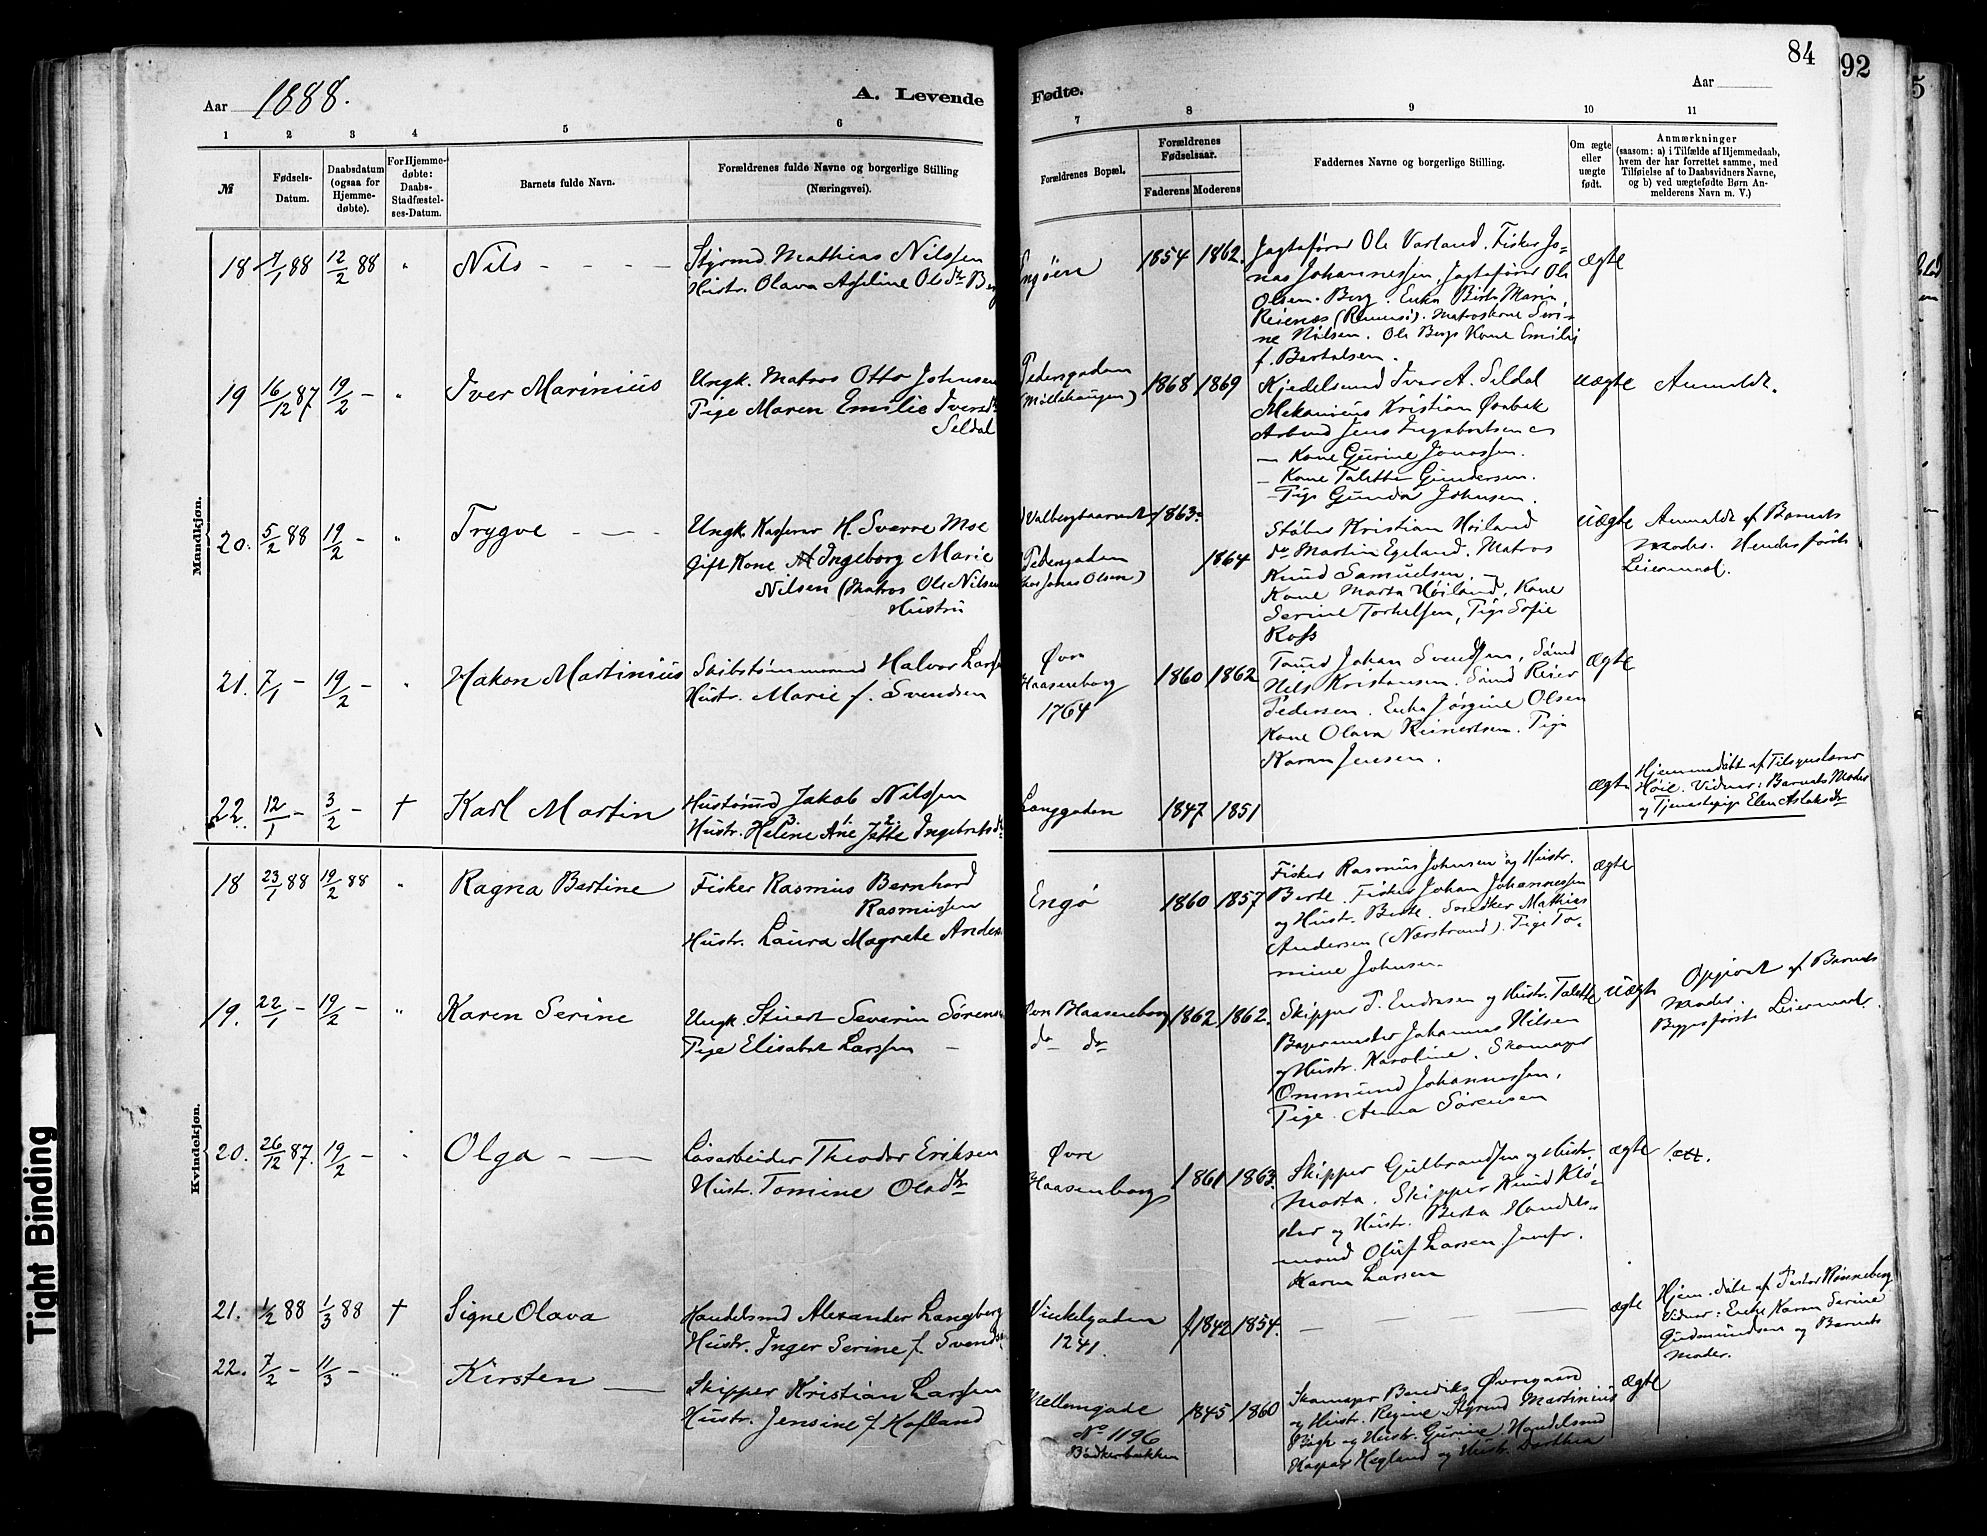 84
92
5
Aar 1888.
A. Levende
Fødte.
Aar
1 2 3 4 5 6 7 8 9 10 11
№
Fødsels-
Datum.
Daabsdatum
(ogsaa for
Hjemme-
døbte).
For Hjemme-
døbte:
Daabs-
Stadfæstel-
ses-Datum.
Barnets fulde Navn.
Forældrenes fulde Navne og borgerlige Stilling
(Næringsvei).
Forældrenes Bopæl.
Forældrenes
Fødselsaar.
Faderens
Moderens
Faddernes Navne og borgerlige Stilling.
Om ægte
eller
uægte
født.
Anmærkninger
(saasom: a) i Tilfælde af Hjemmedaab,
hvem der har forrettet samme, med
Tilføielse af to Daabsvidners Navne,
og b) ved uægtefødte Børn An-
melderens Navn m. V.)
Mandkjøn.
18 7/1 88 12/2 88 "
Nils
Styrmd. Mathias Nilssen
Hustr. Olava Olsdtr Berg
Engøen
1854 1862.
Jagtefører Ole Varland. Fisker Jo-
nas Johannessen, Jagtefører Ole
Olsen Berg. Enke Birte Maria
Reienes Matroskone Seri-
ne Nilsen. Ole Bergs Kone Emilie
f. Bertelsen.
ægte
19 16/12 87 19/2 - "
Iver Marinius
Ungk. Matros Otto Johnsen
Pige Maren Emilie Iversdtr
Seldal
Pedersgaden
(Møllehaugen)
1868 1869
Kjedelsmed Iver A. Seldal
Mekanicus Kristian
Arbmd Jens Ingebretsen
- Kone Gurine Jonassen.
- Kone Talette Gundersen.
- Pige Gunda Johnsen.
uægte
Anmeldt.
20. 5/2 88 19/2 - "
Trygve
Ungk. Kasserer H. Sverre Moe
gift Kone Ingeborg Marie
Nilsen (Matros Ole Nilsens
Hustru
Pedersgaden
(hos Jonas Olsen)
1863
1864
Støber Kristian Høiland
do Martin Egeland. Matros
Knud Samuelsen. -
Kone Marta Høiland, Kone
Serine Torkelsen, Pige Sofie
Ross
uægte
Anmeldt af Barnets
Moder. Hendes første
Leiermaal.
21. 7/1 - 19/2 - "
Hakon Martinius
Skibstømmermd Halvor Larsen
Hustr. Marie f. Svendsen
Øvre
Haasenborg
1764
1860 1862
Tømd Johan Svendsen, Sømd
Nils Kristensen. Sømd Reier
Pedersen. Enke Jørgine Olsen
Kone Olava Reinertsen. Pige
Karen Jensen.
ægte
22. 12/1 - 3/2 - †
Karl Martin
Hustømd Jakob Nilssen
Hustr. Heline Ane Jette Ingebretsdtr
Langgaden
1847 1851
ægte
Hjemmedøbt af Tilsynslærer
Høie. Vidner: Barnets Moder
og Tjenestepige Elen Aslaksdtr
Kvindekjøn.
18 23/1 88 19/2 88 "
Ragna Bertine
Fisker Rasmus Bernhard
Rasmussen
Hustr. Laura Magrete Anders
Engø
1860 1857
Fisker Rasmus Johnsen og Hustr.
Berte. Fisker Johan Johannessen
og Hustr. Berte. Snedker Mathias
Andersen (Nærstrand). Pige To-
mine Johnsen.
ægte
19. 22/1 - 19/2 - "
Karen Serine
Ungk. Stuert Severin Sørens
Pige Elisabet Larssen -
Haasenborg
do do
1862 1862.
Skipper P. Endresen og Hustr. Talette
Bagermester Johannes Nilsen
og Hustr. Karoline. Skomager
Ommund Johannessen,
Pige Anna Sørensen
uægte
Opgivet af Barnets
Moder.
Begges første Leiermaal.
20. 26/12 87. 19/2 - "
Olga
Løsarbeider Theodor Eriksen
Hustr. Tomine Olsdtr
Øvre
Haasenborg
1861 1863.
Skipper Gulbrandsen og Hustr.
Marta. Skipper Knud Klø-
der og Hustr. Berta Handels-
mand Oluf Larsen. Jomfr.
Karen Larsen
ægte
21. 1/2 88 1/3 88 †
Signe Olava
Handelsmd Alexander Langberg
Hustr. Inger Serine f. Svends
Vinkelgaden
1241.
1842 1854.
ægte
Hjem. døbt af Pastor Rønneberg
Vidner: Enke Karen Serine
Gudmundsen og Barnets
Moder.
22. 7/2 - 11/3 - "
Kirsten
Skipper Kristian Larssen
Hustr. Jensine f. Hofland
Mellemgade
No 1196
Bødkerbakken
1845 1860
Skomager Bendiks Øvregaard
og Hustr. Regine. Styrmd Martinius
Bøgh og Hustr. Gurine. Handelsmd
Kaspar Hegland og Hustr. Dorthea
ægte
Tight Binding